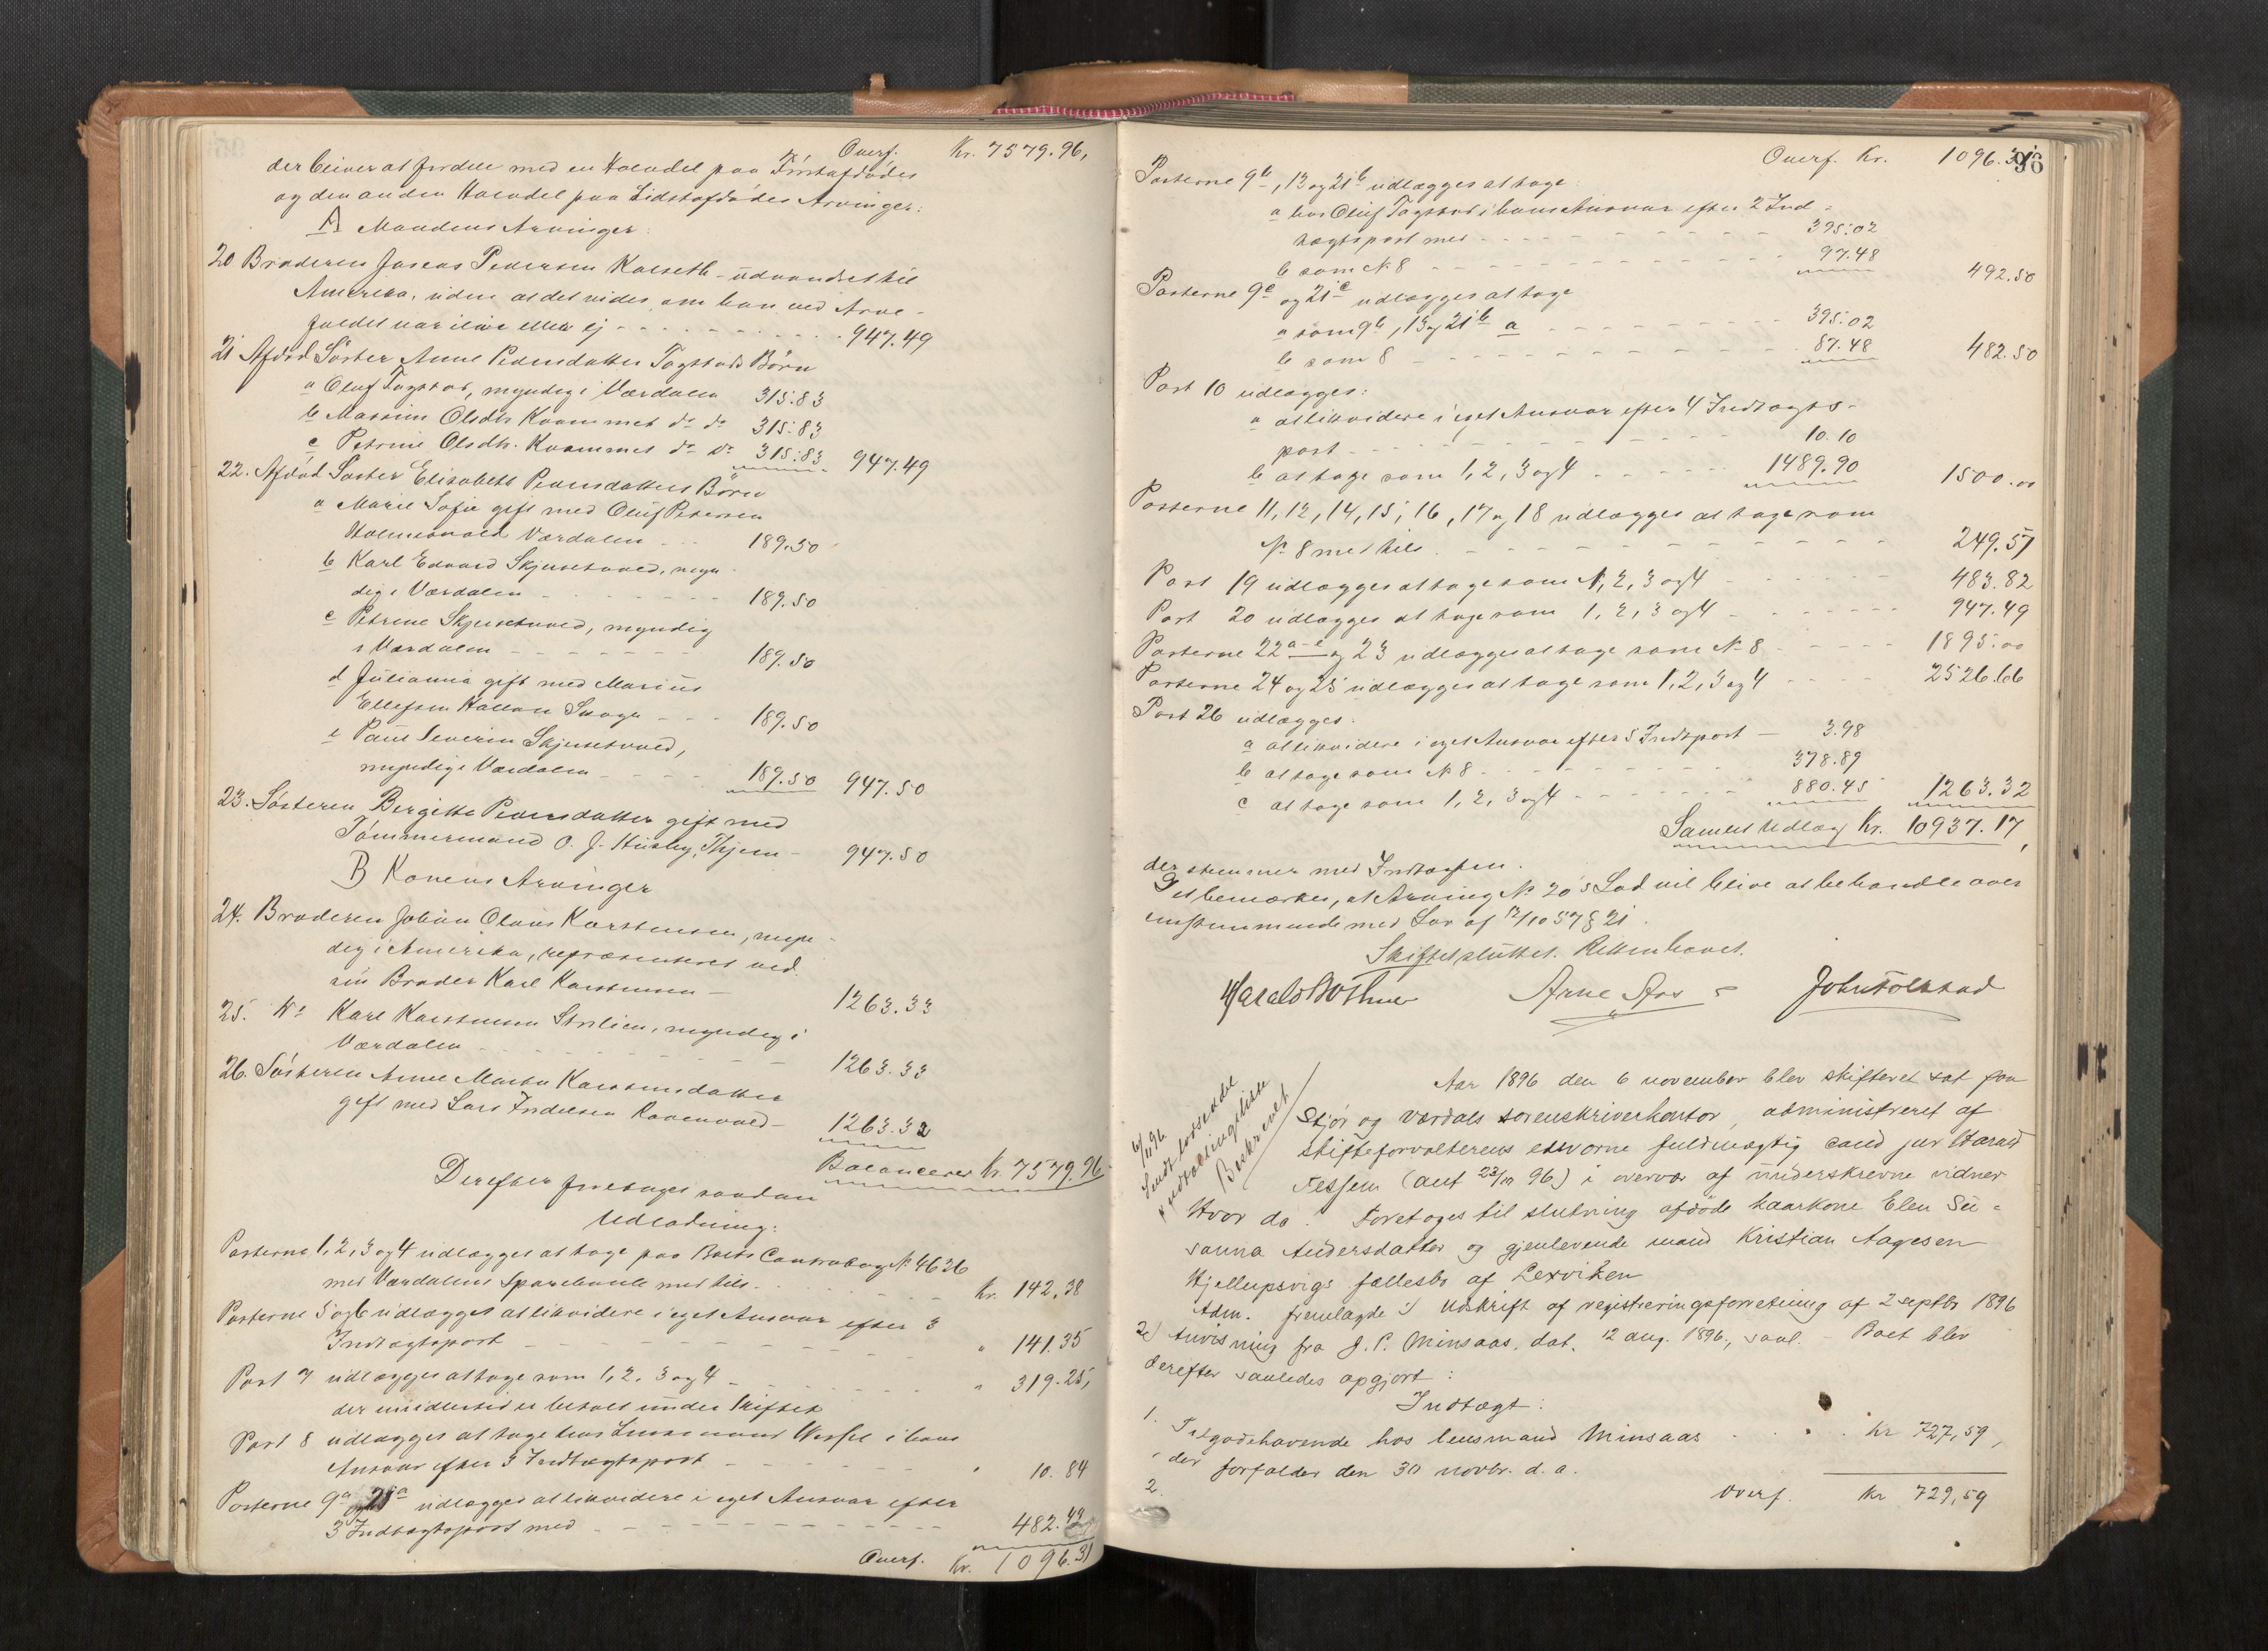 Overf. Kr. 7579.96,
der bliver at fordele med en Halvdel paa Førstafdødes
og den anden Halvdel paa Sidstafdødes Arvinger:
A Mandens Arvinger:
20 Broderen Jonas Pedersen Kalseth - udvandret til
Amerika, uden at det vides, om han ved Arve-
faldet var ilive eller ej - - - 947.49
21 Afdød Søster Anne Pedersdatter Tagstads Børn
a Oluf Tagstad, myndig i Værdalen 315.83
b Massine Olsdtr Kvammet do do 315.83
c Petrine Olsdtr. Kvammet do do 315.83 947.49
22. Afdød Søster Elisabeth Pedersdatters Børn
a Marie Sofie gift med Oluf Petersen
Holmsvald Værdalen - - 189.50
b Karl Edvard Skjusetvald, myn-
dig i Værdalen - - - 189.50
c Petrine Skjusetvald, myndig
i Værdalen - - - 189.50
d Julianna gift med Marius
Ellefsen Hallan Snaga - - - 189.50
e Paul Severin Skjusetvald,
myndig i Værdalen - - - 189.50 947.50
23. Søsteren Bergitta Pedersdatter gift med
Tømmermand O. J. Husby, Thjem - 947.50
B Konens Arvinger
24. Broderen Johan Olaus Karstensen, myn-
dig i Amerika, repræsenteret ved
sin Broder Karl Karstensen - 1263.33
25. Do Karl Karstensen Stiklien, myndig i
Værdalen - - - 1263.33
26. Søsteren Anne Marta Karstensdatter
gift med Lars Indelsen Ravnvald - 1263.32
Balancerer Kr. 7579.96
Derefter foretages saadan
Udlodning:
Posterne 1, 2, 3 og 4 udlægges at tage paa Boets Contrabog No 4636
med Værdalens Sparebank med tils. - - - Kr. 142.38
Posterne 5 og 6 udlægges at likvidere i eget Ansvar efter 3
Indtægtspost - - - " 141.35
Post 7 udlægges at tage som 1, 2, 3 og 4 - - - " 319.25,
der imidlertid er betalt under Skiftet
Post 8 udlægges at tage hos Lensmand Wessel i hans
Ansvar efter 3 Indtægtspost - - - " 10.84
Posterne 9a og 21a udlægges at likvidere i eget Ansvar efter
3 Indtægtspost med - - - 482.49
Overf. Kr. 1096.31
96
Overf. Kr. 1096.31
Posterne 9b, 13 og 21b udlægges at tage
a hos Oluf Tagstad i hans Ansvar efter 2 Ind-
tægtspost med - - - 395.02
b som No 8 - - - 97.48 492.50
Posterne 9c og 21c udlægges at tage
a som 9b, 13 og 21b a - - - 395.02
b som 8 - - - 87.48 482.50
Post 10 udlægges:
a at likvidere i eget Ansvar efter 4 Indtægts-
post - - - 10.10
b at tage som 1, 2, 3 og 4 - - - 1489.90 1500.00
Posterne 11, 12, 14, 15, 16, 17 og 18 udlægges at tage som
No 8 med tils. - - - 249.51
Post 19 udlægges at tage som 1, 2, 3 og 4 - - - 483.82
Post 20 udlægges at tage som 1, 2, 3 og 4 - - - 947.49
Posterne 22 a-e og 23 udlægges at tage som No 8 - - - 1895.00
Posterne 24 og 25 udlægges at tage som 1, 2, 3 og 4 - - - 2526.66
Post 26 udlægges:
a at likvidere i eget Ansvar efter 5 Indtpost - 3.98
b at tage som No 8 - - - 378.89
c at tage som 1, 2, 3 og 4 - - - 880.45 1263.32
Samlet Udlæg Kr. 10937.17,
der stemmer med Indtægten.
Det bemærkes, at Arving No 20's Lod vil blive at behandle over
ensstemmende med Lov af 12/10 57 § 21.
Skiftet sluttet. Retten hævet.
Harald Bothner Arne Aas John Tolstad
6/11 96
Sendt lodseddel
Beskrevet
Aar 1896 den 6 november blev skifteret sat paa
Stjør og Værdals sorenskriverkontor, administreret af
skifteforvalterens edsvorne fuldmægtig cand jur Harald
Tessem (ant 23/10 96) i overvær af underskrevne vidner
Hvor da: Foretoges til slutning afdøde kaarkone Elen Su-
sanna Andersdatter og gjenlevende mand Kristian Aagesen
Hjellupsvigs fællesbo af Lexviken
Adm. fremlagde 1) Udskrift af registreringsforretning af 2 septbr 1896
2) Anvisning fra J. P. Minsaas, dat. 12 aug. 1896, saal. - Boet blev
derefter saaledes opgjort:
Indtægt:
1. Tilgodehavende hos lensmand Minsaas . . . Kr 727,59,
der forfalder den 30 novbr. d. a.
2.
Overf. Kr 729,59